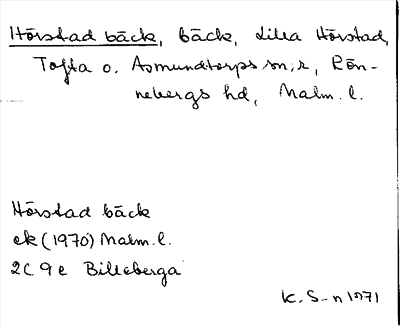 Hörstad bäck, bäck, Lilla Hörstad,
Tofta o. Asmundtorps sn;r, Rön-
nebergs hd, Malm. l.
Hörstad bäck
ek (1970) Malm. l.
2C 9e Billeberga
K. S-n 1971